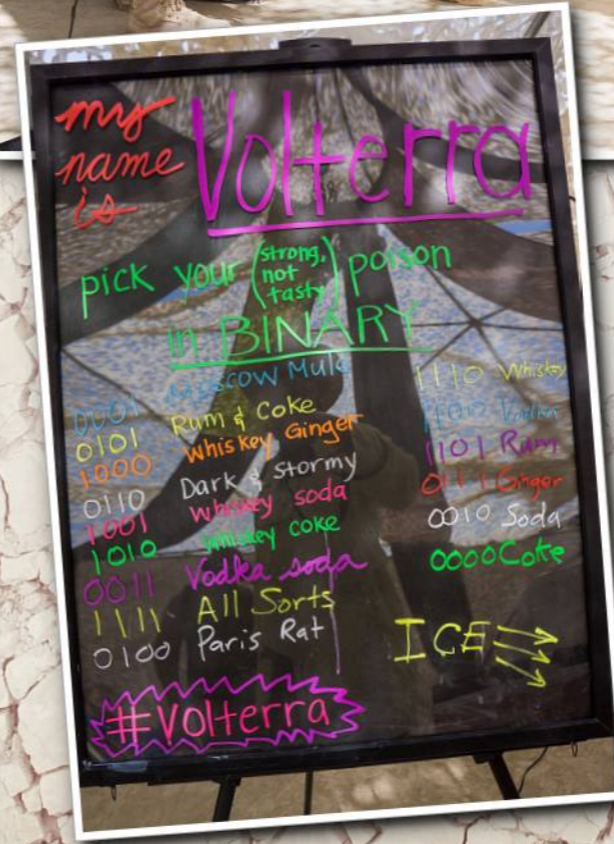 my
name
is
Volterra
pick your (strong, not tasty) poison
in BINARY
0001 Moscow Mule
0101 Rum & Coke
1000 Whiskey Ginger
0110 Dark & Stormy
1001 Whiskey soda
1010 Whiskey coke
0011 Vodka soda
1111 All Sorts
0100 Paris Rat
1110 Whiskey
1100 Vodka
1101 Rum
0111 Ginger
0010 Soda
0000 Coke
ICE
#Volterra